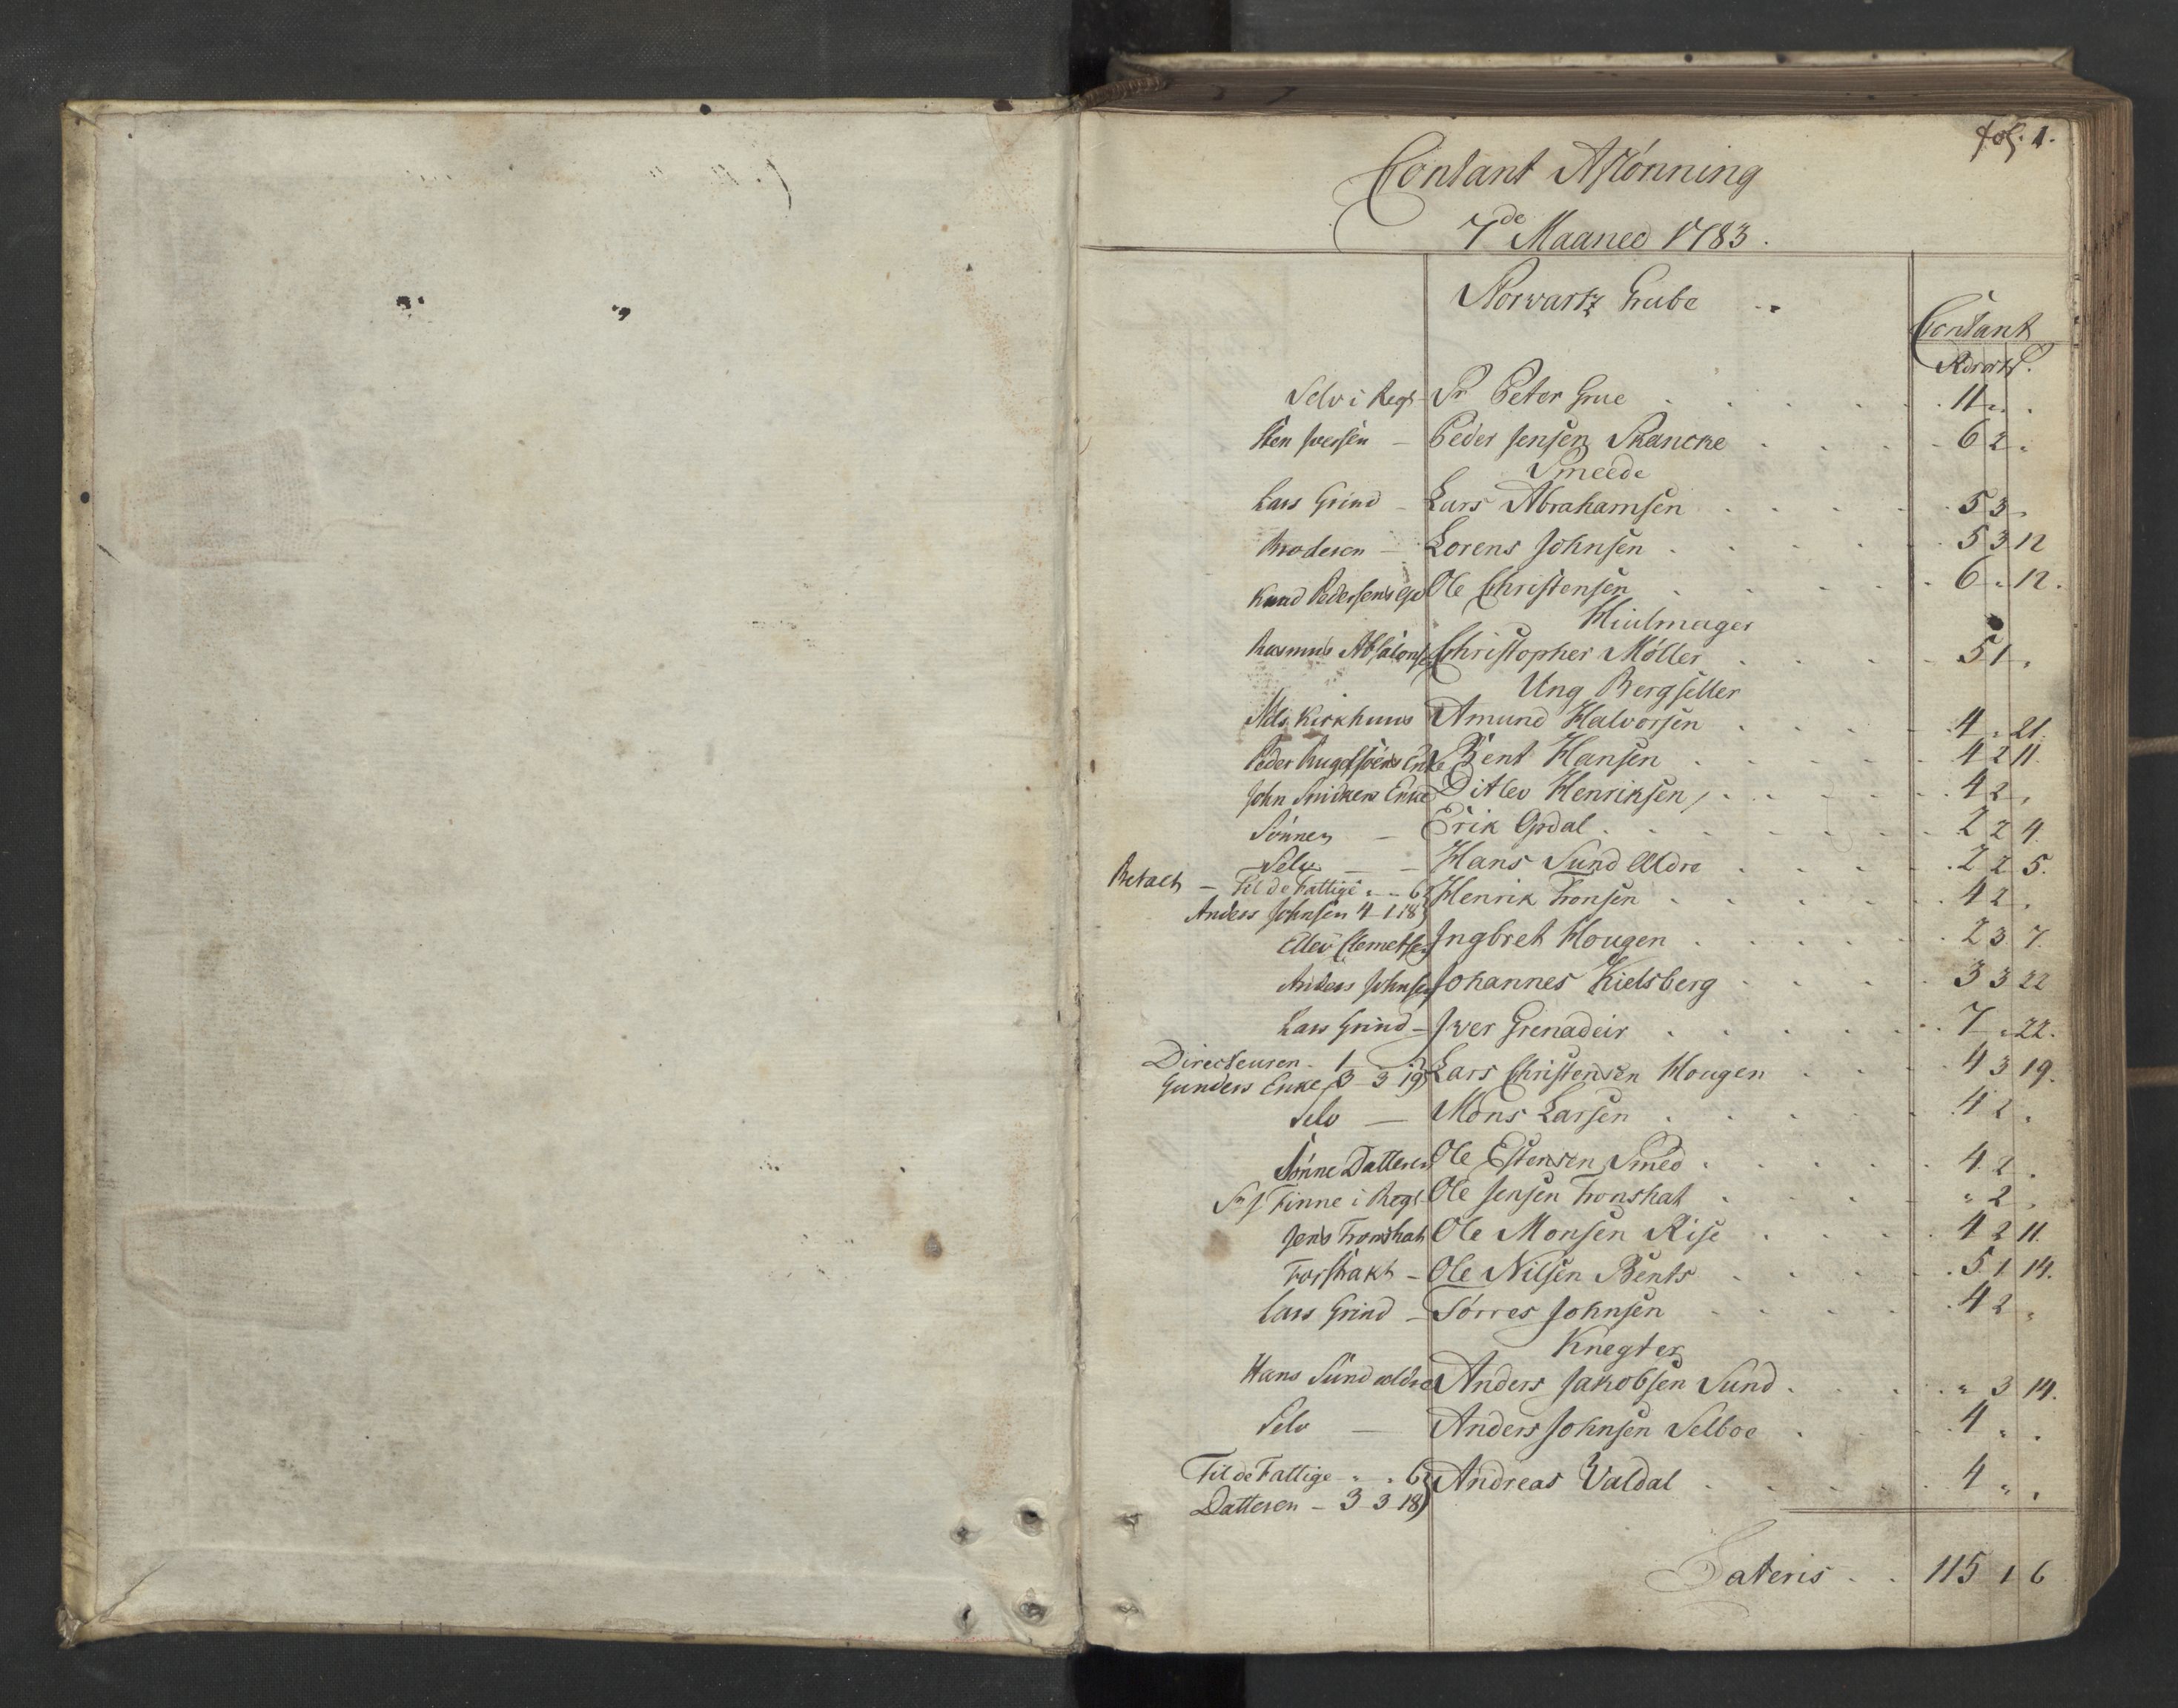 fol. 1.
Contant Aflønning
7de Maaned 1783.
Storvartz Grube
Contant
Rd ort ſ.
Selv i Regt - Sr Peter Grue 11 " .
Sten Iversen - Peder Jensen Skancke 6 2 .
Smeede
Lars Grind - Lars Abrahamsen 5 3 .
Broderen - Lorens Johnsen 5 3 12
Knud Pedersens Ole Christensen 6 " 12.
Hiulmager
Rasmus Absalons Christopher Møller 5 1 .
Ung Bergseller
Nels Kirkhuus Amund Halvorsen 4 " 21.
Peder Bugesøens Enke Bent Hansen 4 2 11.
John Snidkers Enke Ditlev Henriksen 4 2 .
Sønnen - Erik Opdal 2 2 4.
Selv - Hans Sund Ældre 2 2 5.
Betalt - Til de Fattige " " 6 } Henrik Tronsen 4 2 .
Anders Johnsen 4 1 18 }
Ellev Clemetsen Ingbret Hougen 2 3 7.
Anders Johnsen Johannes Kielsberg 3 3 22
Lars Grind - Iver Grenadeir 7 " 22.
Directeuren - 1 } Lars Christensen Hougen 4 3 19.
Gunders Enke 3 3 19 }
Selv - Mons Larsen 4 2 .
Sønne Datteren Ole Estensen Smed 4 2 .
Sr J. Finne i Regt Ole Jensen Tronshat " 2 .
Jens Tronshat Ole Monsen Rise 4 2 11.
Forstrakt - Ole Nilsen Bents 5 1 14.
Lars Grind - Tørres Johnsen 4 2 "
Knegter
Hans Sund ældre Anders Jakobsen Sund " 3 14.
Selv - Anders Johnsen Selboe 4 " .
Til de Fattige " " 6 } Andreas Valdal 4 " .
Datteren - 3 3 18 }
Lateris 115 1 6